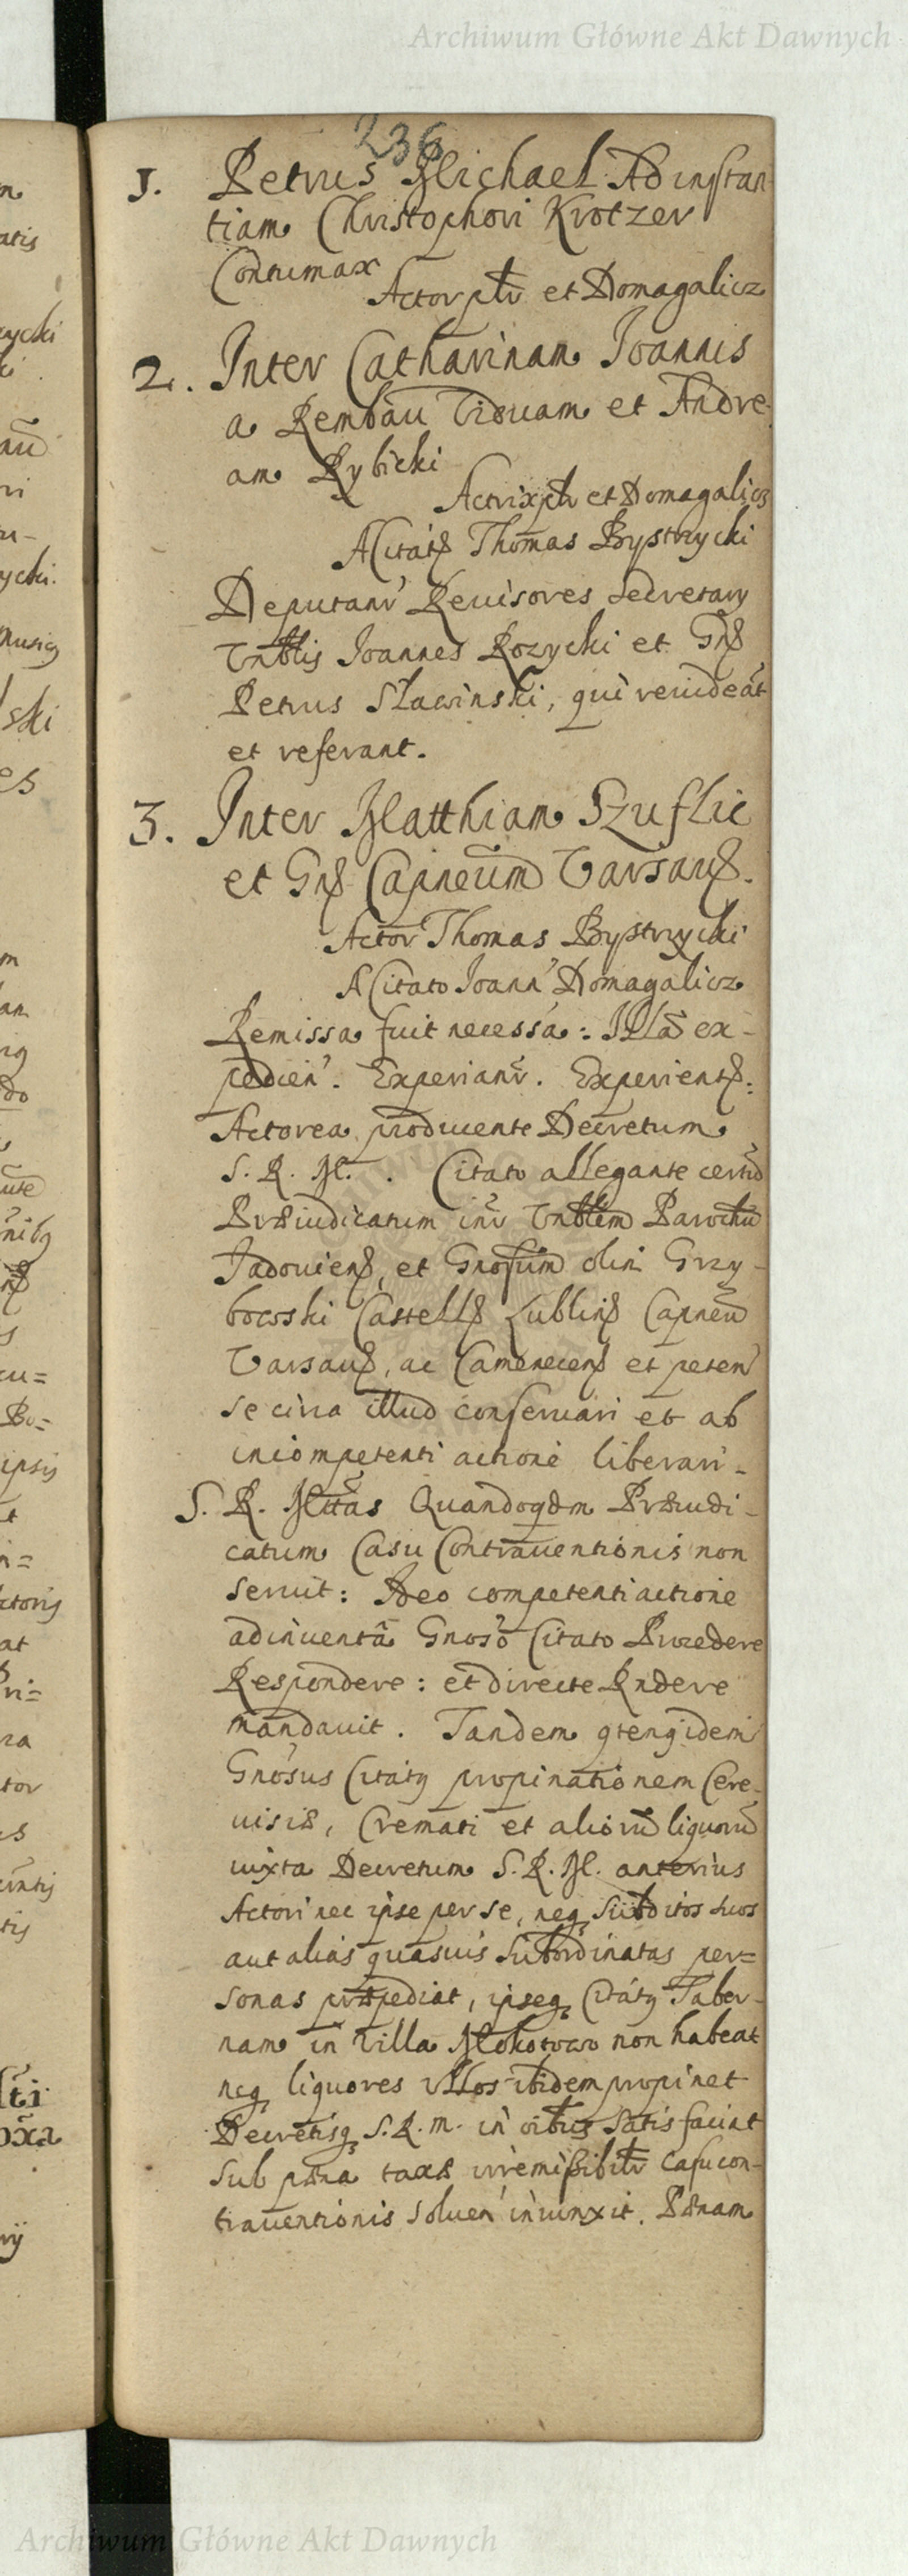 Archiwum Główne Akt Dawnych
236
1. Petrus Michael Ad instan
tiam Christophori Krotzer
Contumax
Actor pñr et Domagalicz
2. Inter Catharinam Joannis
a Rembau Viduam et Andre
am Rybicki
Actrix pñr et Domagalicz
A Citatꝭ Thomas Bystrzycki
Deputanr Reuisores Secretary
Vnblis Joannes Rozycki et Gñs
Petrus Sławinski, qui reuideãt
et referant.
3. Inter Matthiam Szuflic
et Gñs Capneum Varsauꝭ.
Actor Thomas Bystrzycki
A Citato Joann' Domagalicz
Remissa fuit necessa: Illã ex-
pedien'. Experianr. Experientꝭ.
Actorea producente Decretum
S. R. M. . Citato allegante certũ
Præiudicatum int Vnblem Parochũ
Jadouienꝭ, et Gnosum olim Grzy-
bowski Castellꝭ Lublinꝭ Capneũ
Varsauꝭ, ac Camenecenꝭ et peten'
se circa illud conseruari et ab
incompetenti actione liberari -
S. R. Mttas Quandoqdm Præiudi-
catum Casu Contrauentionis non
seruit: Ideo competenti actione
adinuentâ Gnoso Citato Procedere
Respondere: et directe Rndere
mandauit. Tandem
Gnosus Citatꝰ propinationem Cere-
uisiæ, Cremati et aliorũ liquorũ
iuxta Decretum S. R. M. anterius
Actori nec ipse per se, neqꝫ Subditos suos
aut alias quasuis subordinatas per=
sonas præpediat, ipseqꝫ Citatꝰ Taber-
nam in Villa Mokotowo non habeat
neqꝫ liquores vllos ibidem propinet
Decretisqꝫ S. R. M. in oibus satisfaciat
sub pæna taxæ irremissibilr casu con-
trauentionis soluen' iniunxit. Pænam
Archiwum Główne Akt Dawnych